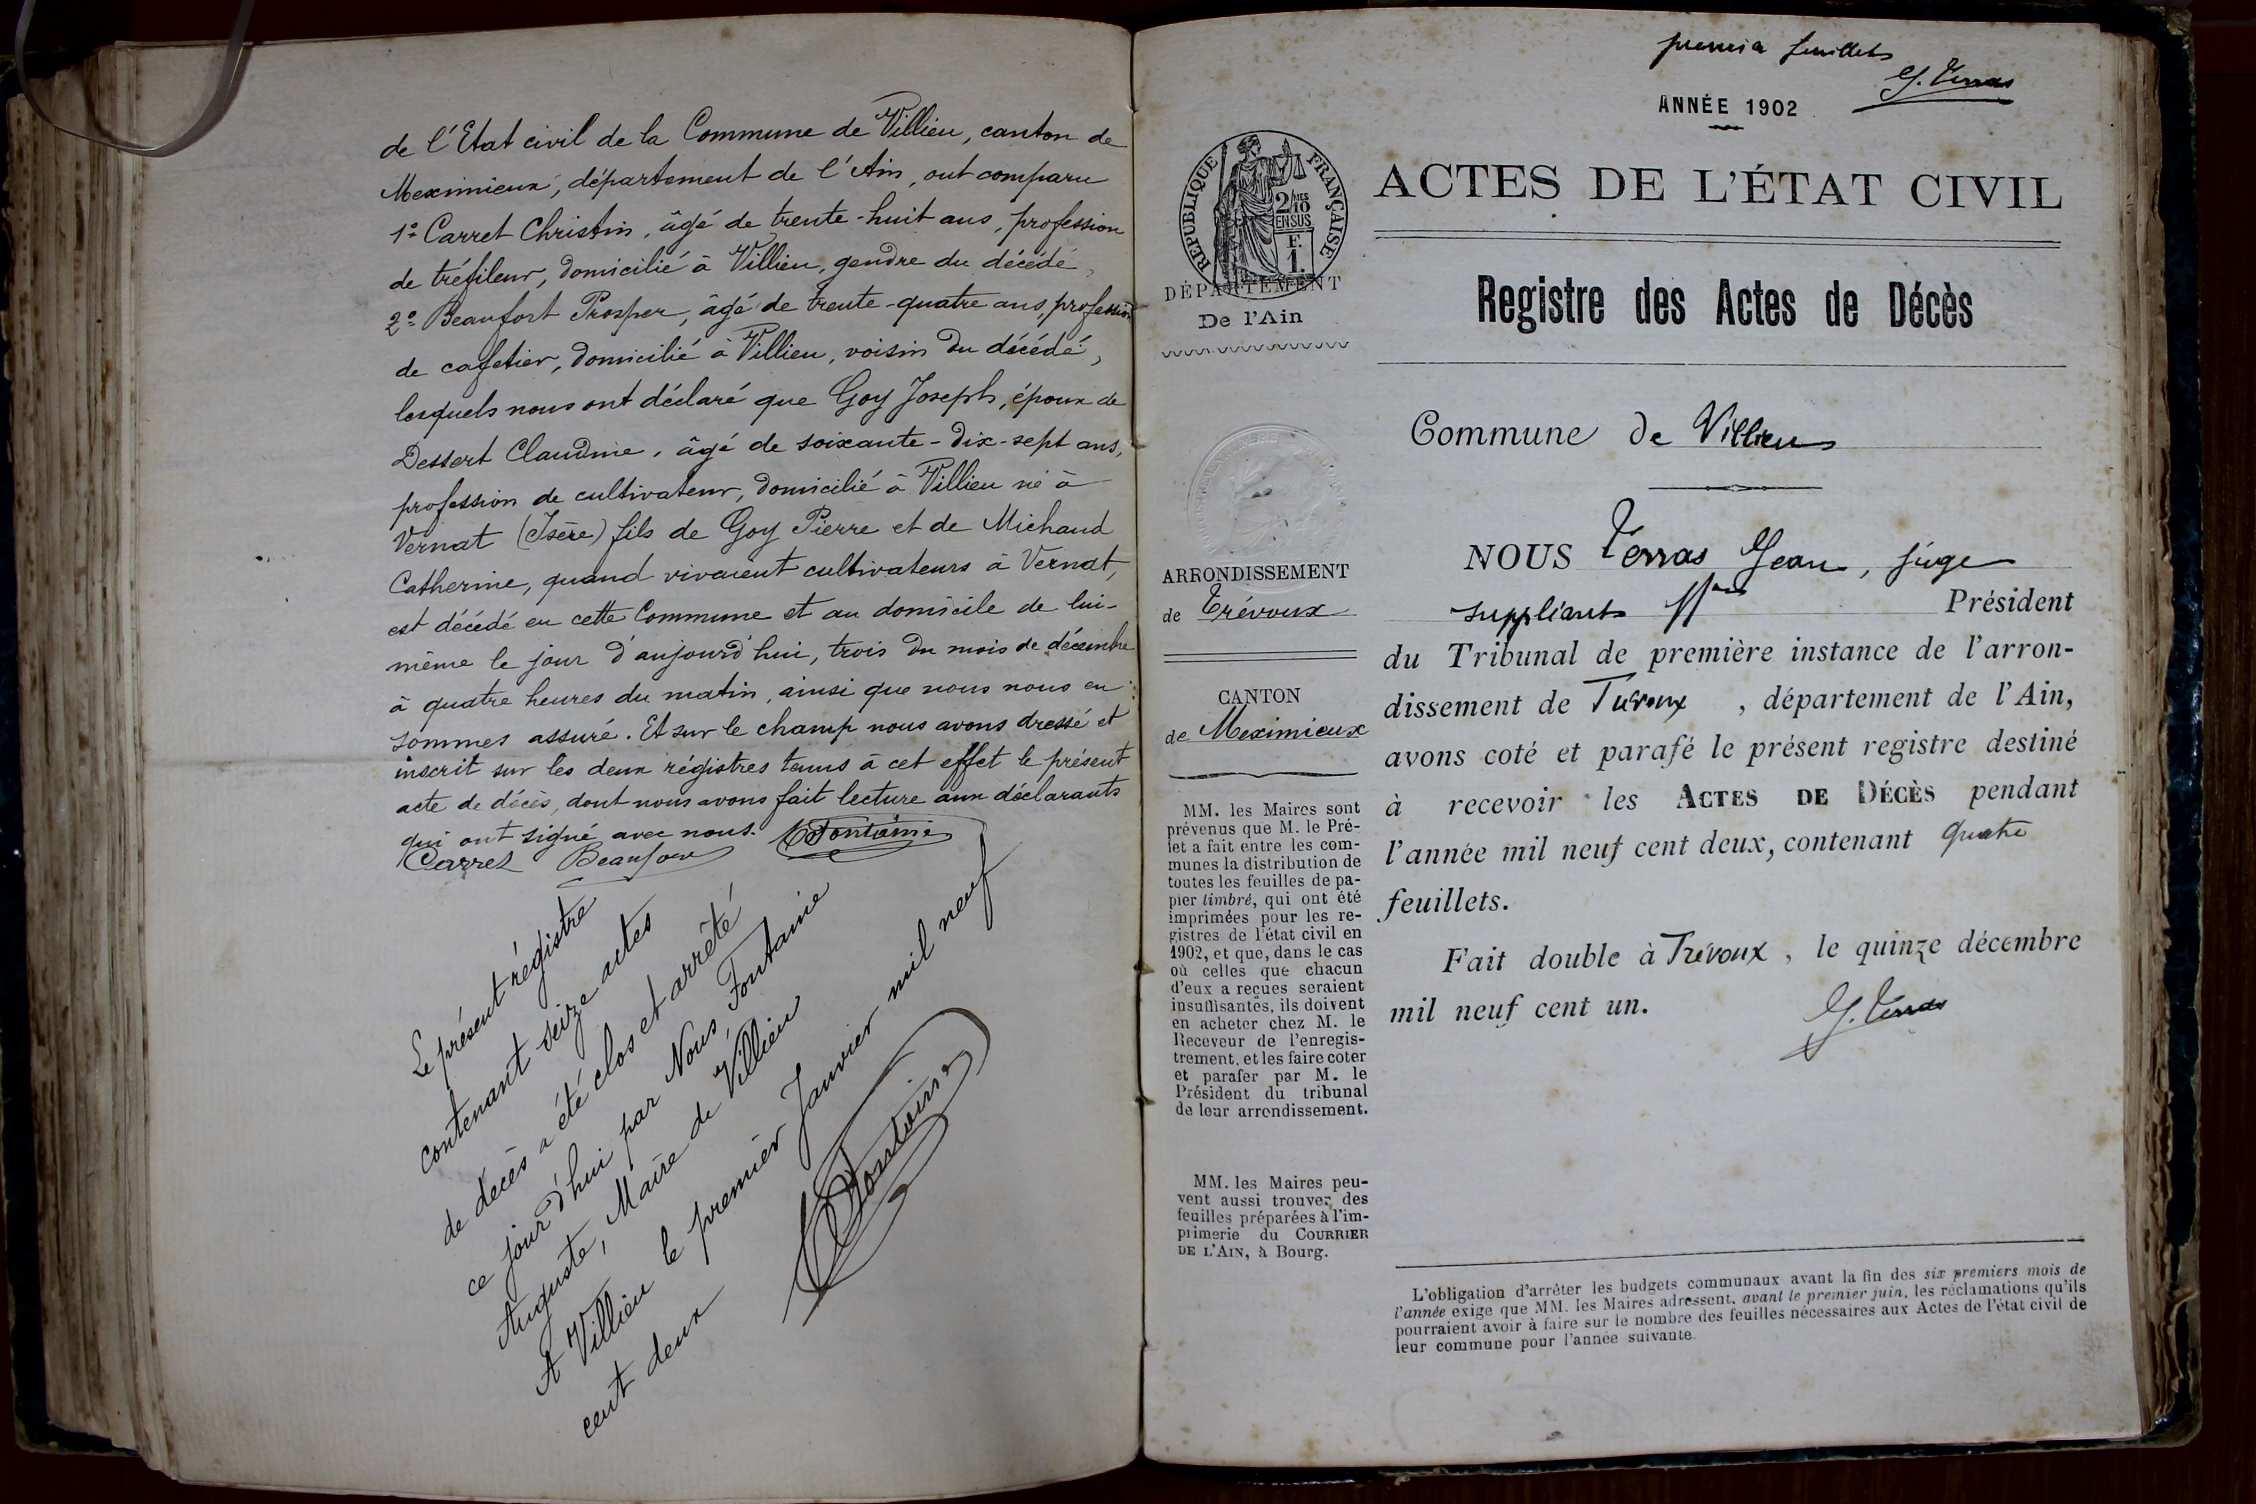 de l'Etat civil de la Commune de Villieu, canton de
Meximieux, département de l'Ain, ont comparu
1º Carret Christin, âgé de trente-huit ans, profession
de tréfileur, domicilié à Villieu, gendre du décédé,
2º Beaufort Prosper, âgé de trente-quatre ans, profession
de cafetier, domicilié à Villieu, voisin du décédé,
lesquels nous ont déclaré que Goy Joseph, époux de
Dessert Claudine, âgé de soixante-dix-sept ans,
profession de cultivateur, domicilié à Villieu né à
Vernat (Isère) fils de Goy Pierre et de Michaud
Catherine, quand vivaient cultivateurs à Vernat,
est décédé en cette Commune et au domicile de lui-
même le jour d'aujourd'hui, trois du mois de décembre
à quatre heures du matin, ainsi que nous nous en
sommes assuré. Et sur le champ nous avons dressé et
inscrit sur les deux régistres tenus à cet effet le présent
acte de décès, dont nous avons fait lecture aux déclarants
qui ont signé avec nous.
Carret Beaufort Fontaine
Le présent régistre
contenant seize actes
de décès a été clos et arrêté
ce jourd'hui par Nous Fontaine
Auguste, Maire de Villieu
A Villieu le premier Janvier mil neuf
cent deux
Fontaine
premier feuillet
J. Terras
ANNÉE 1902
ACTES DE L'ÉTAT CIVIL
RÉPUBLIQUE FRANÇAISE
2/10 EN SUS
F. 1.
DÉPARTEMENT
De l'Ain
Registre des Actes de Décès
Commune de Villieu
ARRONDISSEMENT
de Trévoux
CANTON
de Meximieux
MM. les Maires sont
prévenus que M. le Pré-
fet a fait entre les com-
munes la distribution de
toutes les feuilles de pa-
pier timbré, qui ont été
imprimées pour les re-
gistres de l'état civil en
1902, et que, dans le cas
où celles que chacun
d'eux a reçues seraient
insuffisantes, ils doivent
en acheter chez M. le
Receveur de l'enregis-
trement, et les faire coter
et parafer par M. le
Président du tribunal
de leur arrondissement.
MM. les Maires peu-
vent aussi trouver des
feuilles préparées à l'im-
primerie du COURRIER
DE L'AIN, à Bourg.
NOUS Terras Jean, juge
suppléant Président
du Tribunal de première instance de l'arron-
dissement de Trévoux, département de l'Ain,
avons coté et parafé le présent registre destiné
à recevoir les ACTES DE DÉCÈS pendant
l'année mil neuf cent deux, contenant quatre
feuillets.
Fait double à Trévoux, le quinze décembre
mil neuf cent un.
J. Terras
L'obligation d'arrêter les budgets communaux avant la fin des six premiers mois de
l'année exige que MM. les Maires adressent, avant le premier juin, les réclamations qu'ils
pourraient avoir à faire sur le nombre des feuilles nécessaires aux Actes de l'état civil de
leur commune pour l'année suivante.